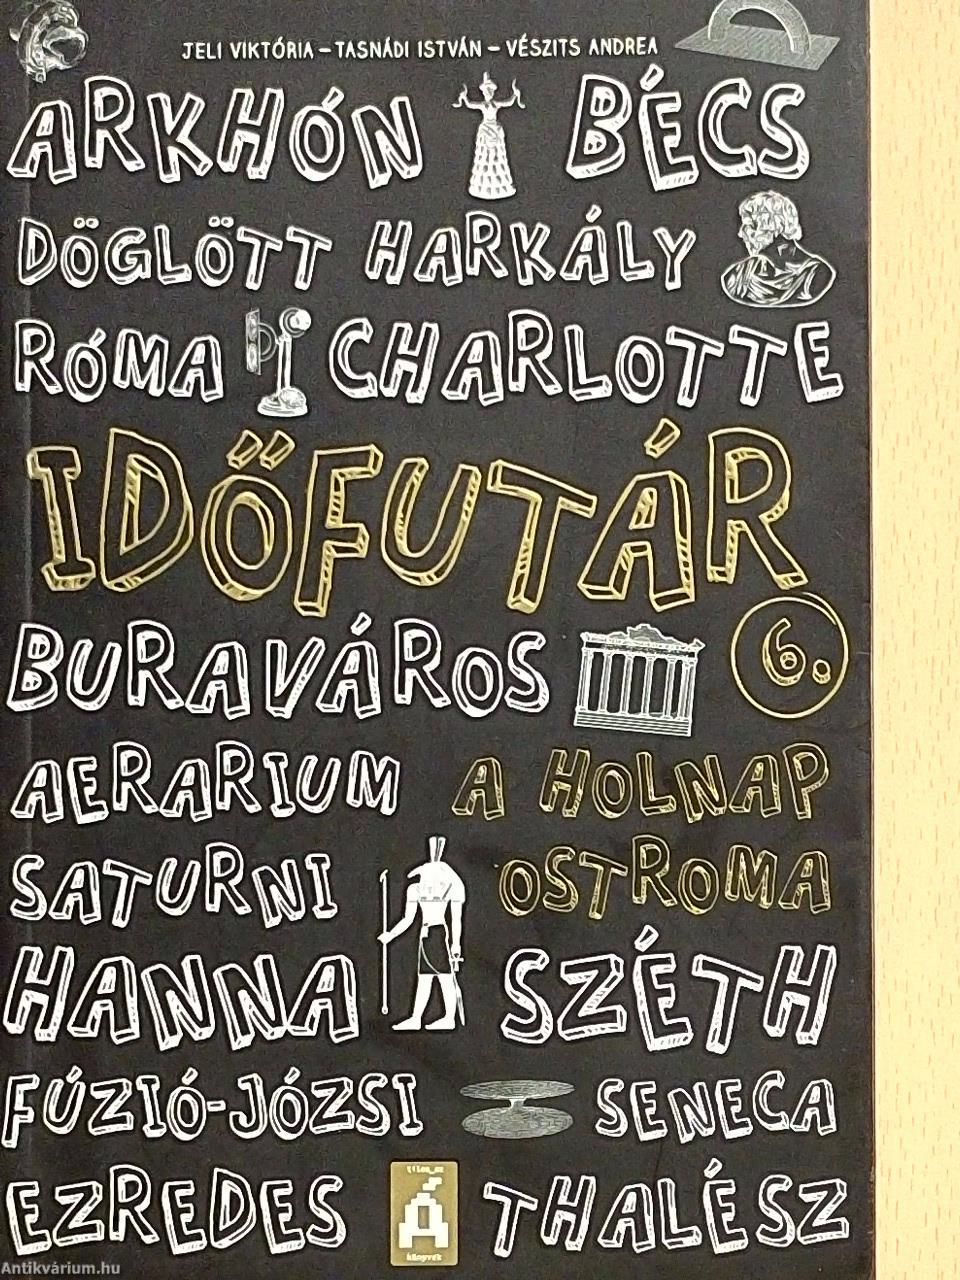 JELI VIKTÓRIA – TASNÁDI ISTVÁN – VÉSZITS ANDREA
ARKHÓN BÉCS
DÖGLÖTT HARKÁLY
RÓMA CHARLOTTE
IDŐFUTÁR
BURAVÁROS 6.
AERARIUM A HOLNAP
SATURNI OSTROMA
HANNA SZÉTH
FÚZIÓ-JÓZSI SENECA
EZREDES THALÉSZ
tilos_az
Á
könyvek
Antikvárium.hu